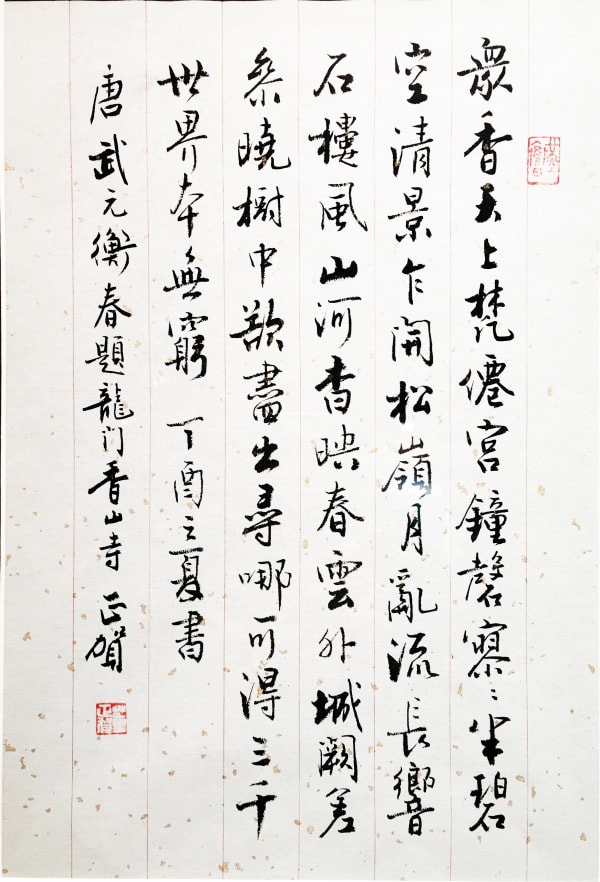 眾香天上梵僊宮鐘磬寥〻半碧
空清景乍開松嶺月亂流長響
石樓風山河杳映春雲外城闕差
參曉樹中欲盡出尋哪可得三千
世界本無窮 丁酉之夏書
唐武元衡春題龍门香山寺 正賀